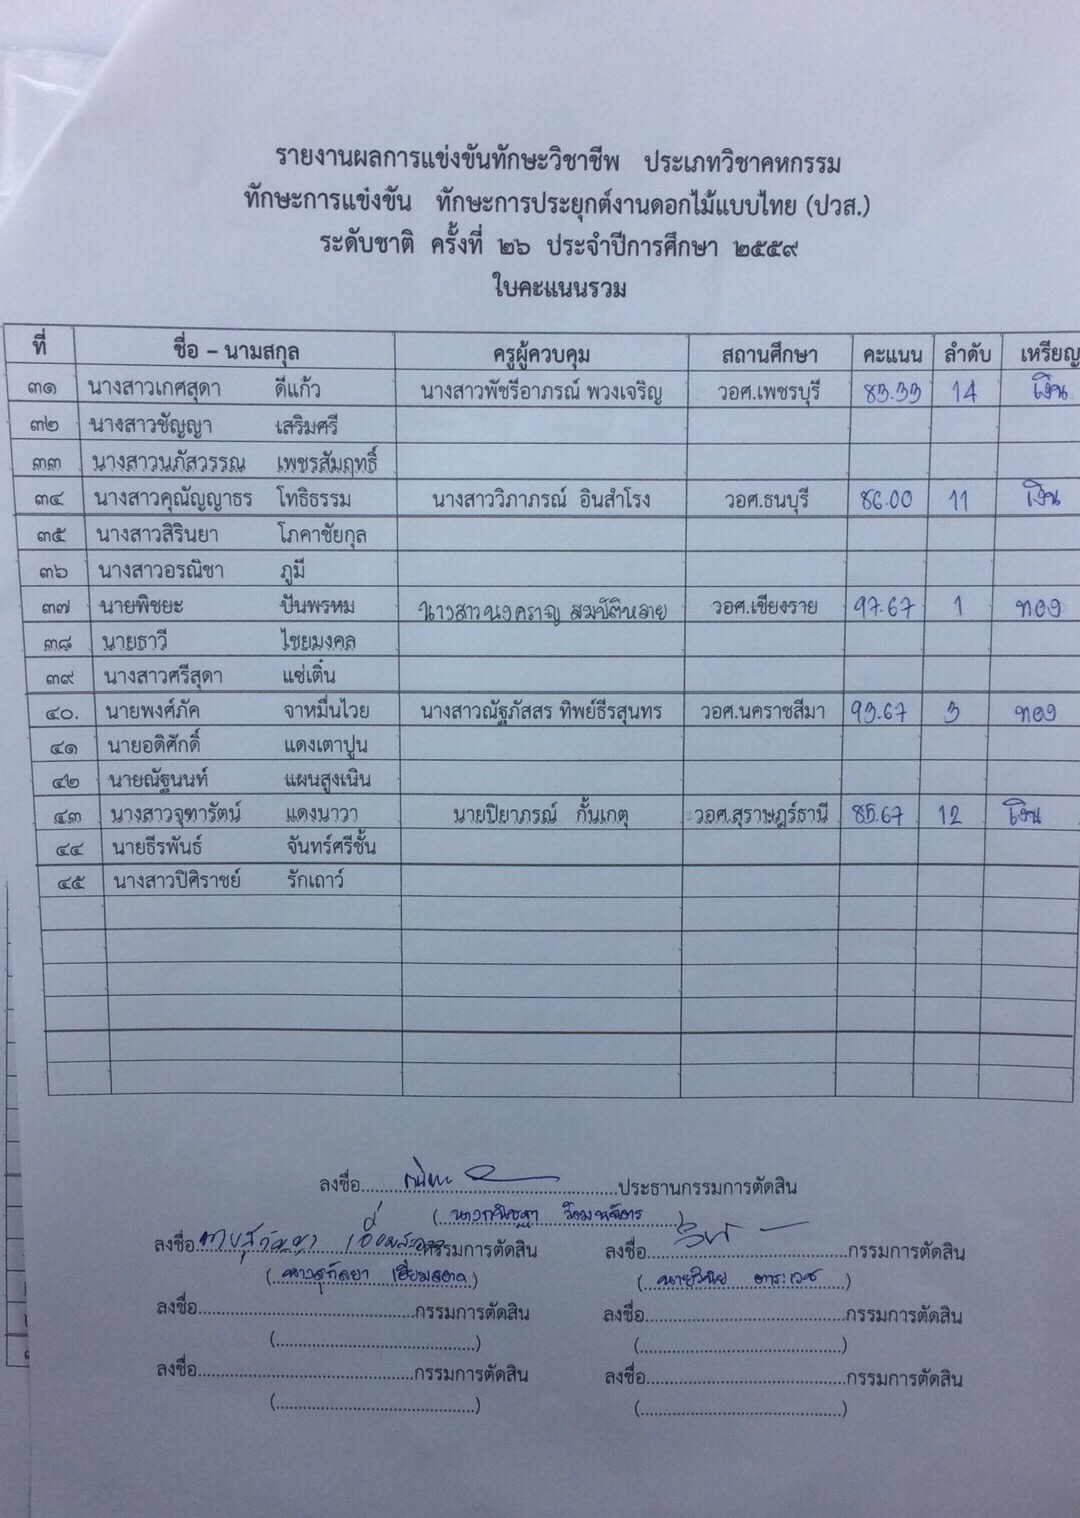 รายงานผลการแข่งขันทักษะวิชาชีพ ประเภทวิชาคหกรรม
ทักษะการแข่งขัน ทักษะการประยุกต์งานดอกไม้แบบไทย (ปวส.)
ระดับชาติ ครั้งที่ ๒๖ ประจำปีการศึกษา ๒๕๕๙
ใบคะแนนรวม
ที่ ชื่อ – นามสกุล ครูผู้ควบคุม สถานศึกษา คะแนน ลำดับ เหรียญ
๓๑ นางสาวเกศสุดา ดีแก้ว นางสาวพัชรีอาภรณ์ พวงเจริญ วอศ.เพชรบุรี 83.33 14 เงิน
๓๒ นางสาวชัญญา เสริมศรี
๓๓ นางสาวนภัสวรรณ เพชรสัมฤทธิ์
๓๔ นางสาวคุณัญญาธร โทธิธรรม นางสาววิภาภรณ์ อินสำโรง วอศ.ธนบุรี 86.00 11 เงิน
๓๕ นางสาวสิรินยา โภคาชัยกุล
๓๖ นางสาวอรณิชา ภูมี
๓๗ นายพิชยะ ปันพรหม นางสาวนงคราญ สมบัติหลาย วอศ.เชียงราย 97.67 1 ทอง
๓๘ นายธาวี ไชยมงคล
๓๙ นางสาวศรีสุดา แซ่เติ๋น
๔๐. นายพงศ์ภัค จาหมื่นไวย นางสาวณัฐภัสสร ทิพย์ธีรสุนทร วอศ.นคราชสีมา 93.67 3 ทอง
๔๑ นายอดิศักดิ์ แดงเตาปูน
๔๒ นายณัฐนนท์ แผนสูงเนิน
๔๓ นางสาวจุฑารัตน์ แดงนาวา นายปิยาภรณ์ กั้นเกตุ วอศ.สุราษฎร์ธานี 85.67 12 เงิน
๔๔ นายธีรพันธ์ จันทร์ศรีชั้น
๔๕ นางสาวปิศิราชย์ รักเถาว์
ลงชื่อ ประธานกรรมการตัดสิน
ลงชื่อ กรรมการตัดสิน ลงชื่อ กรรมการตัดสิน
(นางสุกัลยา เอี่ยมสอาด) (นายวินัย ตาระเวช)
ลงชื่อ กรรมการตัดสิน ลงชื่อ กรรมการตัดสิน
ลงชื่อ กรรมการตัดสิน ลงชื่อ กรรมการตัดสิน